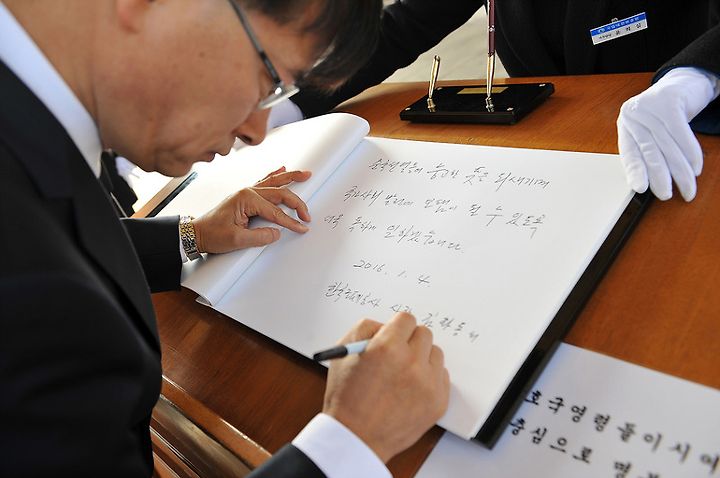 순국선열들의 숭고한 뜻을 되새기며
국가사회 발전에 보탬이 될 수 있도록
더욱 독하게 일하겠습니다.
2016. 1. 4.
사장 김학송
호국영령들이시여
충심으로 명